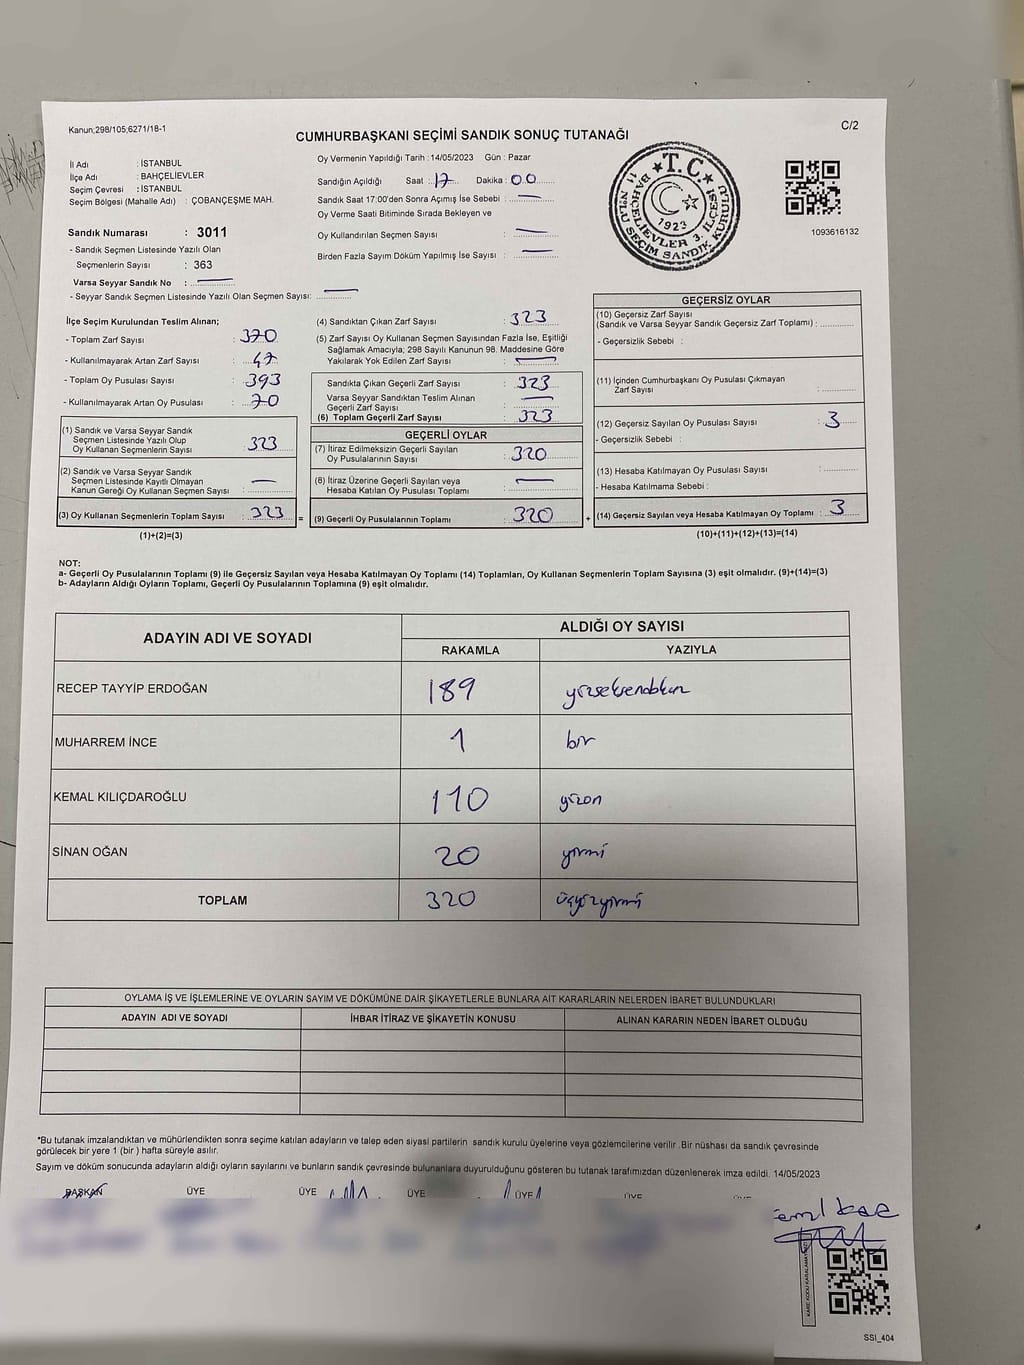 Kanun;298/105;6271/18-1
C/2
CUMHURBAŞKANI SEÇİMİ SANDIK SONUÇ TUTANAĞI
İl Adı : İSTANBUL
İlçe Adı : BAHÇELİEVLER
Seçim Çevresi : İSTANBUL
Seçim Bölgesi (Mahalle Adı) : ÇOBANÇEŞME MAH.
Sandık Numarası : 3011
- Sandık Seçmen Listesinde Yazılı Olan
Seçmenlerin Sayısı : 363
Varsa Seyyar Sandık No :
- Seyyar Sandık Seçmen Listesinde Yazılı Olan Seçmen Sayısı:
Oy Vermenin Yapıldığı Tarih : 14/05/2023 Gün : Pazar
Sandığın Açıldığı Saat : 17 Dakika : 00
Sandık Saat 17:00'den Sonra Açımış İse Sebebi :
Oy Verme Saati Bitiminde Sırada Bekleyen ve
Oy Kullandırılan Seçmen Sayısı :
Birden Fazla Sayım Döküm Yapılmış İse Sayısı :
T.C.
BAHÇELİEVLER 3. İLÇESİ
1923
11 NOLU SEÇİM SANDIK KURULU
1093616132
İlçe Seçim Kurulundan Teslim Alınan;
- Toplam Zarf Sayısı : 370
- Kullanılmayarak Artan Zarf Sayısı : 47
- Toplam Oy Pusulası Sayısı : 393
- Kullanılmayarak Artan Oy Pusulası : 70
(1) Sandık ve Varsa Seyyar Sandık
Seçmen Listesinde Yazılı Olup
Oy Kullanan Seçmenlerin Sayısı : 323
(2) Sandık ve Varsa Seyyar Sandık
Seçmen Listesinde Kayıtlı Olmayan
Kanun Gereği Oy Kullanan Seçmen Sayısı :
(3) Oy Kullanan Seçmenlerin Toplam Sayısı : 323
(1)+(2)=(3)
(4) Sandıktan Çıkan Zarf Sayısı : 323
(5) Zarf Sayısı Oy Kullanan Seçmen Sayısından Fazla İse, Eşitliği
Sağlamak Amacıyla; 298 Sayılı Kanunun 98. Maddesine Göre
Yakılarak Yok Edilen Zarf Sayısı :
Sandıkta Çıkan Geçerli Zarf Sayısı : 323
Varsa Seyyar Sandıktan Teslim Alınan
Geçerli Zarf Sayısı :
(6) Toplam Geçerli Zarf Sayısı : 323
GEÇERLİ OYLAR
(7) İtiraz Edilmeksizin Geçerli Sayılan
Oy Pusulalarının Sayısı : 320
(8) İtiraz Üzerine Geçerli Sayılan veya
Hesaba Katılan Oy Pusulası Toplamı :
= (9) Geçerli Oy Pusulalarının Toplamı : 320
GEÇERSİZ OYLAR
(10) Geçersiz Zarf Sayısı
(Sandık ve Varsa Seyyar Sandık Geçersiz Zarf Toplamı) :
- Geçersizlik Sebebi :
(11) İçinden Cumhurbaşkanı Oy Pusulası Çıkmayan
Zarf Sayısı :
(12) Geçersiz Sayılan Oy Pusulası Sayısı : 3
- Geçersizlik Sebebi :
(13) Hesaba Katılmayan Oy Pusulası Sayısı :
- Hesaba Katılmama Sebebi :
+ (14) Geçersiz Sayılan veya Hesaba Katılmayan Oy Toplamı : 3
(10)+(11)+(12)+(13)=(14)
NOT:
a- Geçerli Oy Pusulalarının Toplamı (9) ile Geçersiz Sayılan veya Hesaba Katılmayan Oy Toplamı (14) Toplamları, Oy Kullanan Seçmenlerin Toplam Sayısına (3) eşit olmalıdır. (9)+(14)=(3)
b- Adayların Aldığı Oyların Toplamı, Geçerli Oy Pusulalarının Toplamına (9) eşit olmalıdır.
ADAYIN ADI VE SOYADI ALDIĞI OY SAYISI
RAKAMLA YAZIYLA
RECEP TAYYİP ERDOĞAN 189 yüzseksendokuz
MUHARREM İNCE 1 bir
KEMAL KILIÇDAROĞLU 110 yüzon
SİNAN OĞAN 20 yirmi
TOPLAM 320 üçyüzyirmi
OYLAMA İŞ VE İŞLEMLERİNE VE OYLARIN SAYIM VE DÖKÜMÜNE DAİR ŞİKAYETLERLE BUNLARA AİT KARARLARIN NELERDEN İBARET BULUNDUKLARI
ADAYIN ADI VE SOYADI İHBAR İTİRAZ VE ŞİKAYETİN KONUSU ALINAN KARARIN NEDEN İBARET OLDUĞU
*Bu tutanak imzalandıktan ve mühürlendikten sonra seçime katılan adayların ve talep eden siyasi partilerin sandık kurulu üyelerine veya gözlemcilerine verilir .Bir nüshası da sandık çevresinde
görülecek bir yere 1 (bir ) hafta süreyle asılır.
Sayım ve döküm sonucunda adayların aldığı oyların sayılarını ve bunların sandık çevresinde bulunanlara duyurulduğunu gösteren bu tutanak tarafımızdan düzenlenerek imza edildi. 14/05/2023
BAŞKAN ÜYE ÜYE ÜYE ÜYE
KARE KODU KARALAMAYINIZ
SSI_404